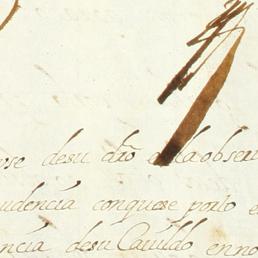 ose desu dro a la obser
udencia conquese porto e
ncia desu Cavildo enno